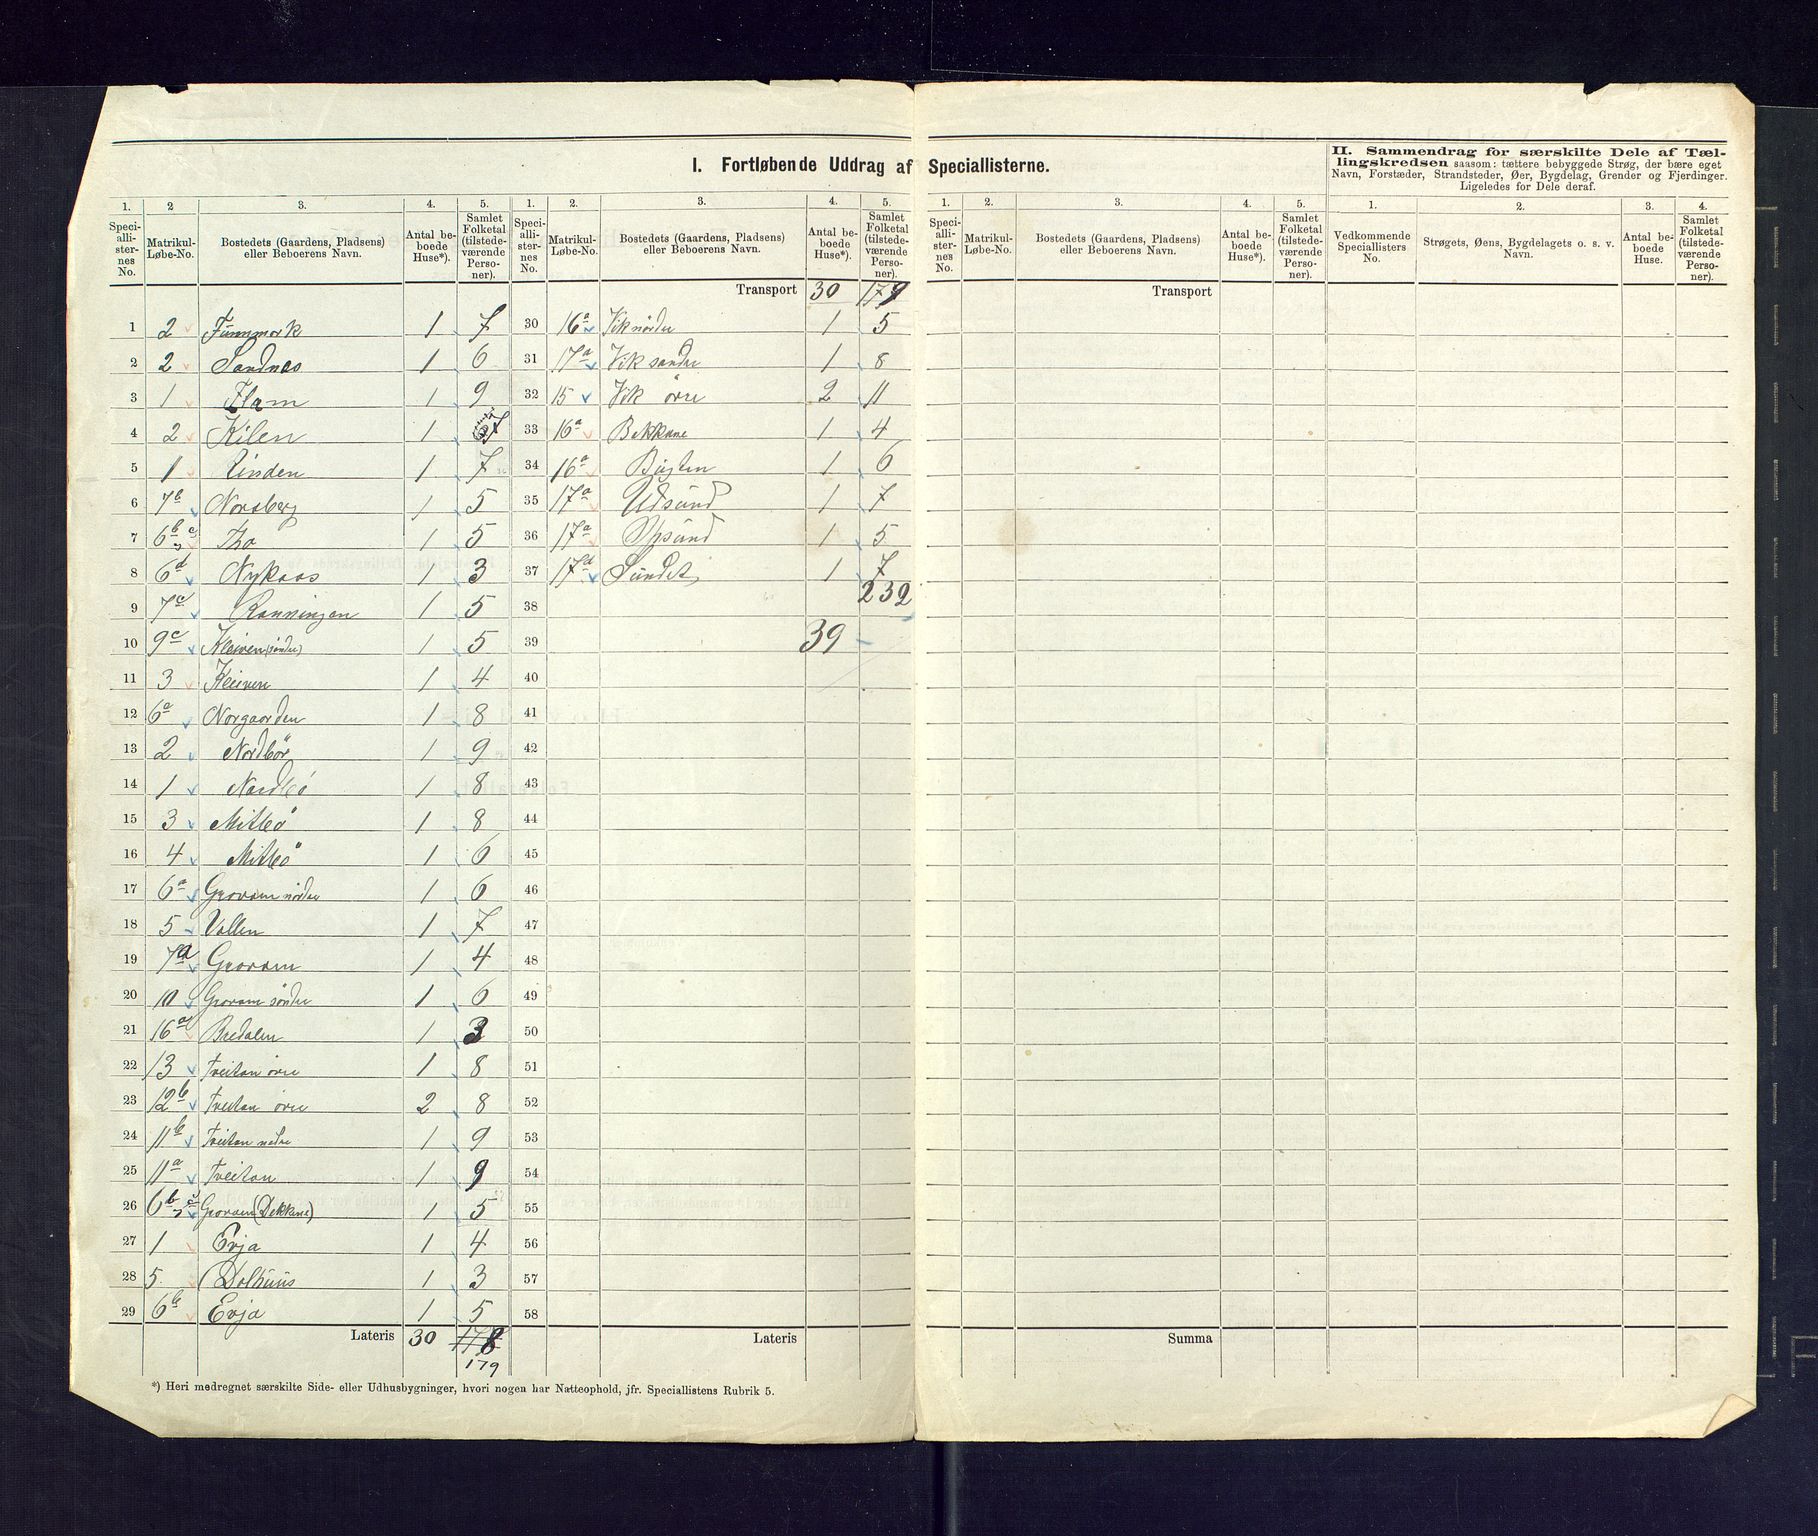 I. Fortløbende Uddrag af Speciallisterne.
II. Sammendrag for særskilte Dele af Tællingskredsen saasom: tættere bebyggede Strøg, der bære eget
Navn, Forstæder, Strandsteder, Øer, Bygdelag, Grender og Fjerdinger.
Ligeledes for Dele deraf.
1. 2 3. 4. 5. 1. 2. 3. 4. 5. 1. 2. 3. 4. 5. 1. 2. 3. 4.
Speciallisternes No. Matrikul-Løbe-No. Bostedets (Gaardens, Pladsens) eller Beboerens Navn. Antal beboede Huse*). Samlet Folketal (tilstedeværende Personer).
Speciallisternes No. Matrikul-Løbe-No. Bostedets (Gaardens, Pladsens) eller Beboerens Navn. Antal beboede Huse*). Samlet Folketal (tilstedeværende Personer).
Speciallisternes No. Matrikul-Løbe-No. Bostedets (Gaardens, Pladsens) eller Beboerens Navn. Antal beboede Huse*). Samlet Folketal (tilstedeværende Personer).
Vedkommende Speciallisters No. Strøgets, Øens, Bygdelagets o. s. v. Navn. Antal beboede Huse. Samlet Folketal (tilstedeværende Personer).
1 2 Fummork 1 7
2 2 Sandnes 1 6
3 1 Flam 1 9
4 2 Kilen 1 7
5 1 Linden 1 7
6 7b Norsberg 1 5
7 6b c Tho 1 5
8 6d Nykaas 1 3
9 7c Ronningen 1 5
10 9c Kleiven (søndre) 1 5
11 3 Kleiven 1 4
12 6a Norgaarden 1 8
13 2 Nordbö 1 9
14 1 Nordbö 1 8
15 3 Mitbö 1 8
16 4 Mitbö 1 6
17 6a Grovam nördre 1 6
18 5 Vallen 1 7
19 7a Grovam 1 4
20 10 Grovam söndre 1 6
21 16a Bredalen 1 3
22 13 Tveitan övre 1 8
23 12b Tveitan övre 2 8
24 11b Tveitan nedre 1 9
25 11a Tveitan 1 9
26 6b c Grovam (Bekkene) 1 5
27 1 Evja 1 4
28 5. Dolhuus 1 3
29 6b Evja 1 5
Lateris 30 178
179
Transport 30 179
30 16a Vik nördre 1 5
31 17a Vik søndre 1 8
32 15 Vik övre 2 11
33 16a Bekkene 1 4
34 16a Bugten 1 6
35 17a Udsund 1 7
36 17a Opsund 1 5
37 17d Sundet 1 7
232
38
39 39
40
41
42
43
44
45
46
47
48
49
50
51
52
53
54
55
56
57
58
Lateris
Transport
Summa
*) Heri medregnet særskilte Side- eller Udhusbygninger, hvori nogen har Natteophold, jfr. Speciallistens Rubrik 5.